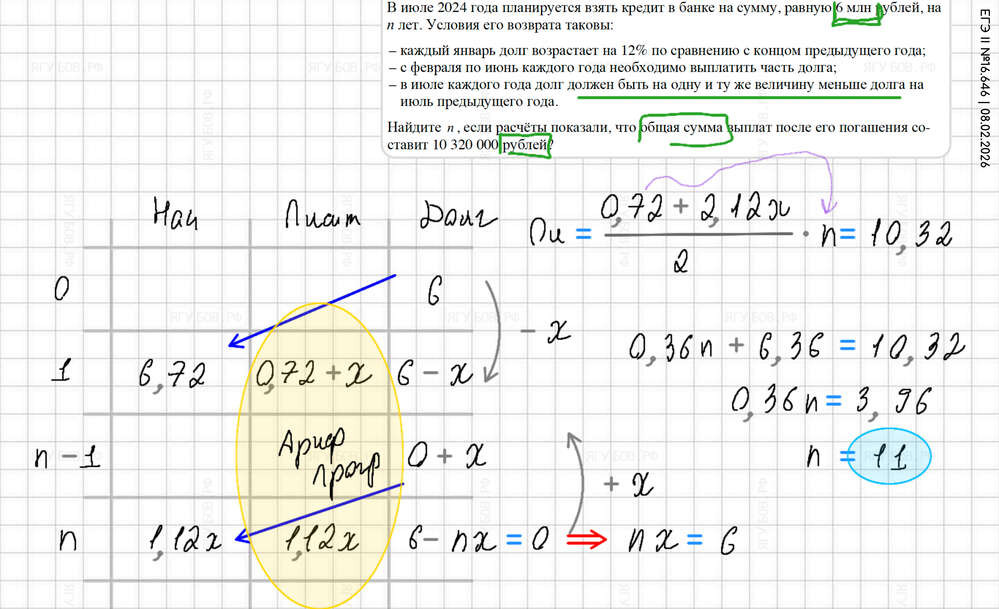 В июле 2024 года планируется взять кредит в банке на сумму, равную 6 млн рублей, на
n лет. Условия его возврата таковы:
– каждый январь долг возрастает на 12% по сравнению с концом предыдущего года;
– с февраля по июнь каждого года необходимо выплатить часть долга;
– в июле каждого года долг должен быть на одну и ту же величину меньше долга на
июль предыдущего года.
Найдите n, если расчёты показали, что общая сумма выплат после его погашения со-
ставит 10 320 000 рублей?
ЕГЭ II №16.646 | 08.02.2026
Нач Плат Долг
0 6
- x
1 6,72 0,72 + x 6 - x
n - 1 Ариф прогр 0 + x
+ x
n 1,12x 1,12x 6 - nx = 0 ⇒ nx = 6
Пи = (0,72 + 2,12x)/2 · n = 10,32
0,36n + 6,36 = 10,32
0,36n = 3,96
n = 11
ЯГУБОВ.РФ